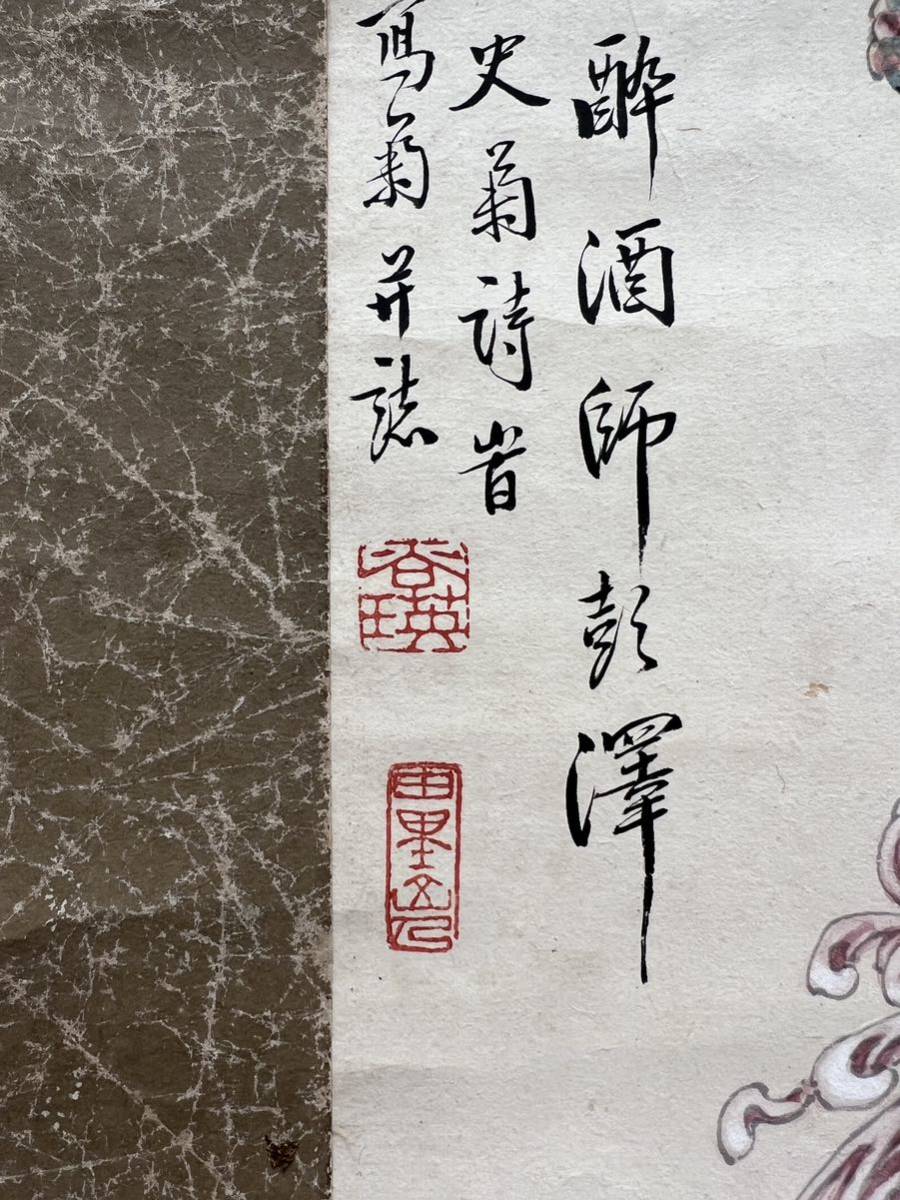 醉酒師彭澤
史菊詩旹
寫菊并誌
谷瑛